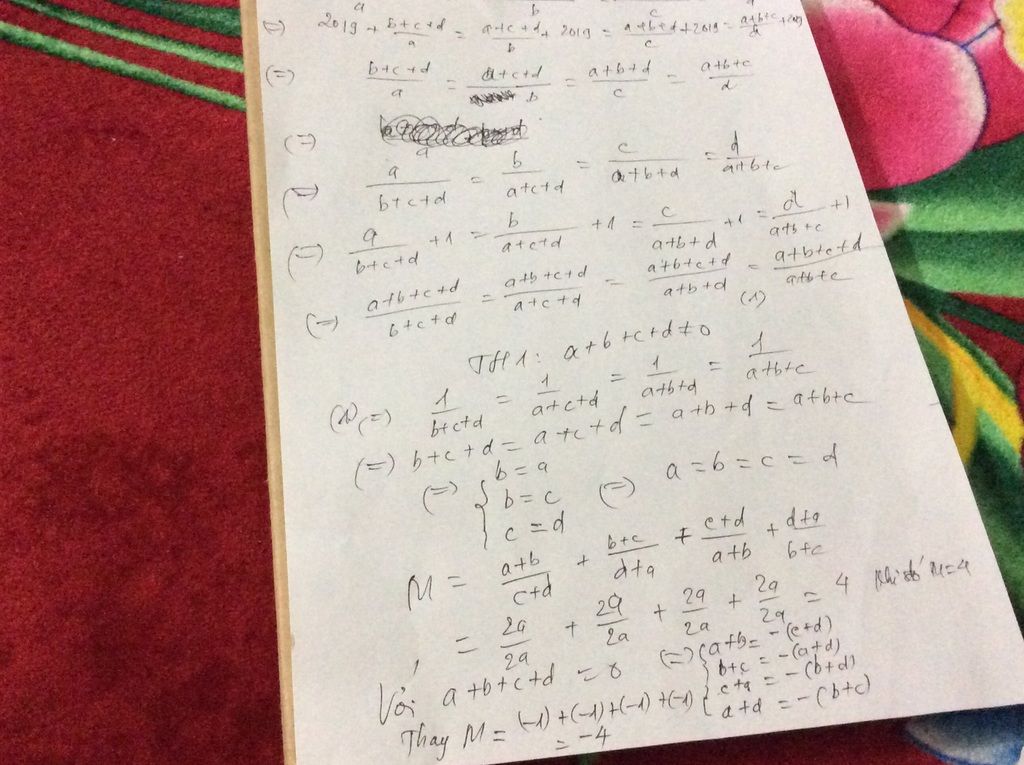 a b c d
(=) 2019 + b+c+d/a = a+c+d/b + 2019 = a+b+d/c + 2019 = a+b+c/d + 2019
(=) b+c+d/a = a+c+d/b = a+b+d/c = a+b+c/d
(=) a
(=) a/b+c+d = b/a+c+d = c/a+b+d = d/a+b+c
(=) a/b+c+d +1 = b/a+c+d +1 = c/a+b+d +1 = d/a+b+c +1
(=) a+b+c+d/b+c+d = a+b+c+d/a+c+d = a+b+c+d/a+b+d = a+b+c+d/a+b+c
(1)
TH1: a+b+c+d ≠ 0
(1) (=) 1/b+c+d = 1/a+c+d = 1/a+b+d = 1/a+b+c
(=) b+c+d = a+c+d = a+b+d = a+b+c
(=) { b = a
b = c (=) a = b = c = d
c = d
M = a+b/c+d + b+c/d+a + c+d/a+b + d+a/b+c
= 2a/2a + 2a/2a + 2a/2a + 2a/2a = 4 Khi đó M=4
Với a+b+c+d = 0 (=) { a+b = -(c+d)
b+c = -(a+d)
c+a = -(b+d)
a+d = -(b+c)
Thay M = (-1)+(-1)+(-1)+(-1)
= -4